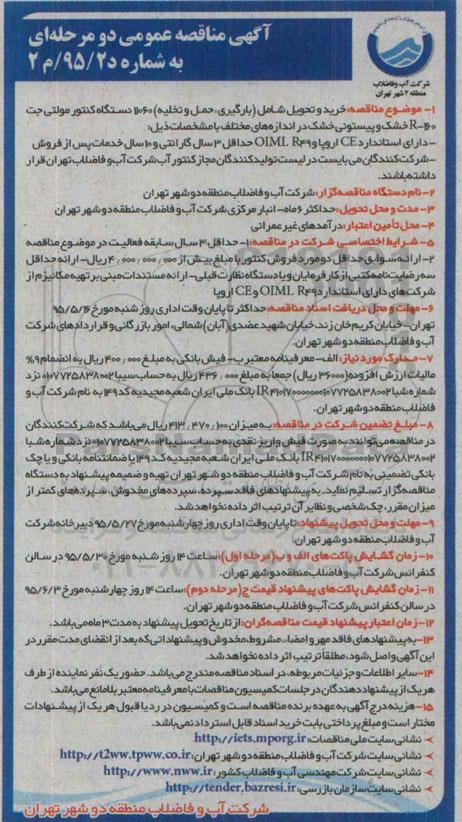 آگهی مناقصه عمومی دو مرحله‌ای
به شماره د۹۵/۲/م ۲
شرکت آب و فاضلاب
منطقه ۲ شهر تهران
۱- موضوع مناقصه: خرید و تحویل شامل (بارگیری، حمل و تخلیه) ۱۱۰۶۰ دستگاه کنتور مولتی جت
R-۱۶۰ خشک و پیستونی خشک در اندازه‌های مختلف با مشخصات ذیل:
- دارای استاندارد CE اروپا و OIML R۴۹ حداقل ۳ سال گارانتی و ۱۰ سال خدمات پس از فروش
- شرکت کنندگان می‌بایست در لیست تولیدکنندگان مجاز کنتور آب شرکت آب و فاضلاب تهران قرار
داشته باشند.
۲- نام دستگاه مناقصه‌گزار: شرکت آب و فاضلاب منطقه دو شهر تهران
۳- مدت و محل تحویل: حداکثر ۶ ماه - انبار مرکزی شرکت آب و فاضلاب منطقه دو شهر تهران
۴- محل تأمین اعتبار: درآمدهای غیر عمرانی
۵- شرایط اختصاصی شرکت در مناقصه: ۱- حداقل ۳ سال سابقه فعالیت در موضوع مناقصه
۲- ارائه سوابق حداقل دو مورد فروش کنتور با مبلغ بیش از ۴,۰۰۰,۰۰۰,۰۰۰ ریال - ارائه حداقل
سه رضایت‌نامه کتبی از کارفرمایان و یا دستگاه نظارت قبلی - ارائه مستندات مبنی بر تهیه مکانیزم از
شرکت‌های دارای استاندارد OIML R۴۹ و CE اروپا
۶- مهلت و محل دریافت اسناد مناقصه: حداکثر تا پایان وقت اداری روز شنبه مورخ ۹۵/۵/۱۶
تهران - خیابان کریم خان زند، خیابان شهید عضدی (آبان) شمالی، امور بازرگانی و قراردادهای شرکت
آب و فاضلاب منطقه دو شهر تهران.
۷- مدارک مورد نیاز: الف - معرفینامه معتبر ب - فیش بانکی به مبلغ ۴۰۰,۰۰۰ ریال به انضمام ۹%
مالیات ارزش افزوده (۳۶۰۰۰ ریال) جمعاً به مبلغ ۴۳۶,۰۰۰ ریال به حساب سیبا ۰۱۰۷۷۲۵۸۳۸۰۰۲ نزد
شماره شبا IR ۴۱۰۱۷۰۰۰۰۰۰۰۱۰۷۷۲۵۸۳۸۰۰۲ بانک ملی ایران شعبه مجیدیه کد ۱۴۹ به نام شرکت آب و
فاضلاب منطقه دو شهر تهران.
۸- مبلغ تضمین شرکت در مناقصه: به میزان ۴۱۳,۴۷۰,۱۰۰ ریال می‌باشد که شرکت‌کنندگان
در مناقصه می‌توانند به صورت فیش واریز نقدی به حساب سیبا ۰۱۰۷۷۲۵۸۳۸۰۰۲ نزد شماره شبا
IR ۴۱۰۱۷۰۰۰۰۰۰۰۱۰۷۷۲۵۸۳۸۰۰۲ بانک ملی ایران شعبه مجیدیه کد ۱۴۹ یا ضمانتنامه بانکی و یا چک
بانکی تضمینی به نام شرکت آب و فاضلاب منطقه دو شهر تهران تهیه و ضمیمه پیشنهاد به دستگاه
مناقصه‌گزار تسلیم نماید. به پیشنهادهای فاقد سپرده، سپرده‌های مخدوش، سپرده‌های کمتر از
میزان مقرر، چک شخصی و نظایر آن ترتیب اثر داده نخواهد شد.
۹- مهلت و محل تحویل پیشنهاد: تا پایان وقت اداری روز چهارشنبه مورخ ۹۵/۵/۲۷ دبیرخانه شرکت
آب و فاضلاب منطقه دو شهر تهران.
۱۰- زمان گشایش پاکت‌های الف و ب (مرحله اول): ساعت ۱۴ روز شنبه مورخ ۹۵/۵/۳۰ در سالن
کنفرانس شرکت آب و فاضلاب منطقه دو شهر تهران.
۱۱- زمان گشایش پاکت‌های پیشنهاد قیمت ج (مرحله دوم): ساعت ۱۴ روز چهارشنبه مورخ ۹۵/۶/۳
در سالن کنفرانس شرکت آب و فاضلاب منطقه دو شهر تهران.
۱۲- زمان اعتبار پیشنهاد قیمت مناقصه‌گران: از تاریخ تحویل پیشنهاد به مدت ۳ ماه می‌باشد.
۱۳- به پیشنهادهای فاقد مهر و امضاء، مشروط، مخدوش و پیشنهاداتی که بعد از انقضای مدت مقرر در
این آگهی واصل شود، مطلقاً ترتیب اثر داده نخواهد شد.
۱۴- سایر اطلاعات و جزئیات مربوطه، در اسناد مناقصه مندرج می‌باشد. حضور یک نفر نماینده از طرف
هر یک از پیشنهاددهندگان در جلسات کمیسیون مناقصات با معرفینامه معتبر بلامانع می‌باشد.
۱۵- هزینه درج آگهی به عهده برنده مناقصه است و کمیسیون در رد یا قبول هر یک از پیشنهادات
مختار است و مبلغ پرداختی بابت خرید اسناد قابل استرداد نمی‌باشد.
نشانی سایت ملی مناقصات: http://iets.mporg.ir
نشانی سایت شرکت آب و فاضلاب منطقه دو شهر تهران: http://t2ww.tpww.co.ir
نشانی سایت شرکت مهندسی آب و فاضلاب کشور: http://www.nww.ir
نشانی سایت سازمان بازرسی: http://tender.bazresi.ir
شرکت آب و فاضلاب منطقه دو شهر تهران